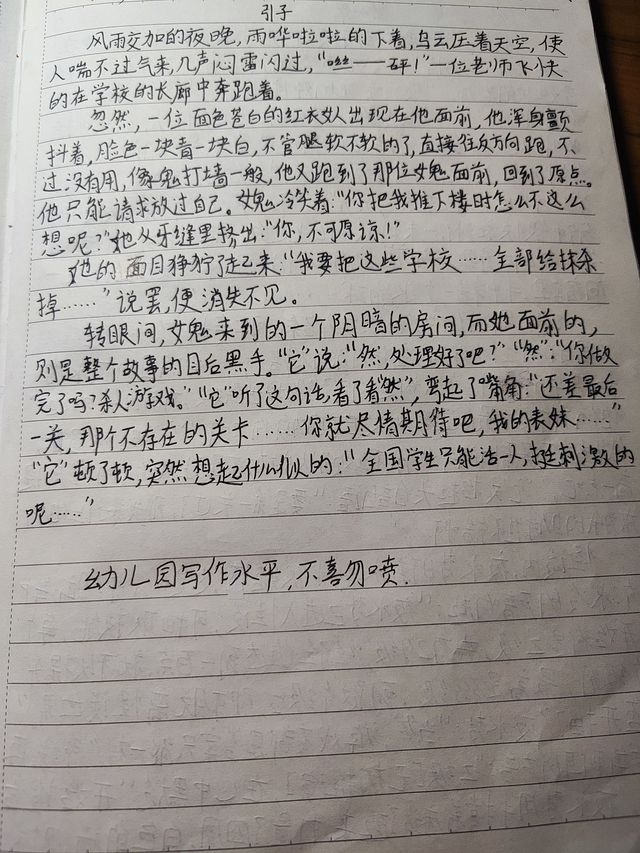 引子
风雨交加的夜晚,雨哗啦啦的下着,乌云压着天空,使
人喘不过气来,几声闷雷闪过,“咝——砰!”一位老师飞快
的在学校的长廊中奔跑着。
忽然,一位面色苍白的红衣女人出现在他面前,他浑身颤
抖着,脸色一块青一块白,不管腿软不软的了,直接往反方向跑,不
过没有用,像鬼打墙一般,他又跑到了那位女鬼面前,回到了原点。
他只能请求放过自己。女鬼冷笑着:“你把我推下楼时怎么不这么
想呢?”她从牙缝里挤出:“你,不可原谅!”
她的面目狰狞了起来:“我要把这些学校……全部给抹杀
掉……”说罢,便消失不见。
转眼间,女鬼来到的一个阴暗的房间,而她面前的,
则是整个故事的目后黑手。“它”说:“然,处理好了吧?”“然”:“你做
完了吗?杀人游戏。”“它”听了这句话,看了看“然”,弯起了嘴角:“还差最后
一关,那个不存在的关卡……你就尽情期待吧,我的表妹……”
“它”顿了顿,突然想起什么似的:“全国学生只能活一人,挺刺激的
呢……”
幼儿园写作水平,不喜勿喷.